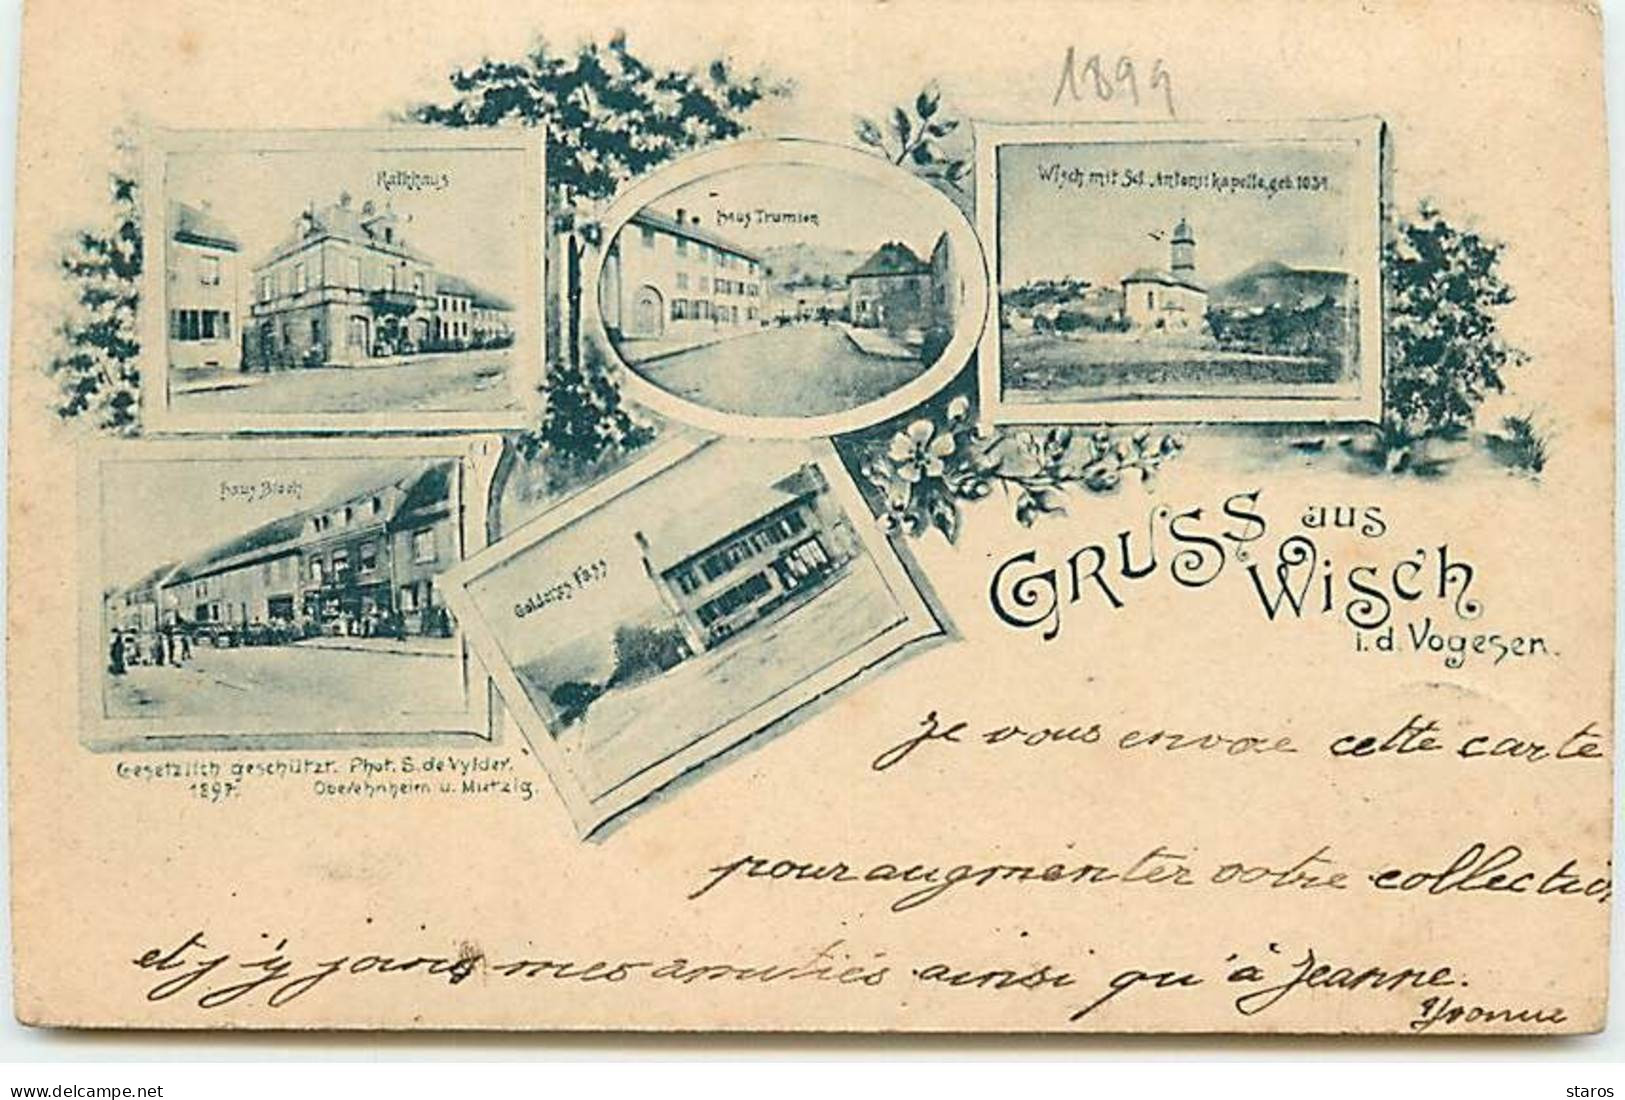 1899
Rathhaus
haus Trumien
Wisch mit Sct. Antonii kapelle, geb. 1031.
haus Bloch
Goldenes Fass
GRUSS aus
Wisch
i. d. Vogesen.
Gesetzlich geschützt. Phot. S. de Vylder.
1897. Oberehnheim u. Mutzig.
je vous envoie cette carte
pour augmenter votre collection
et j'y joins mes amitiés ainsi qu'à Jeanne.
Yvonne
www.delcampe.net
staros